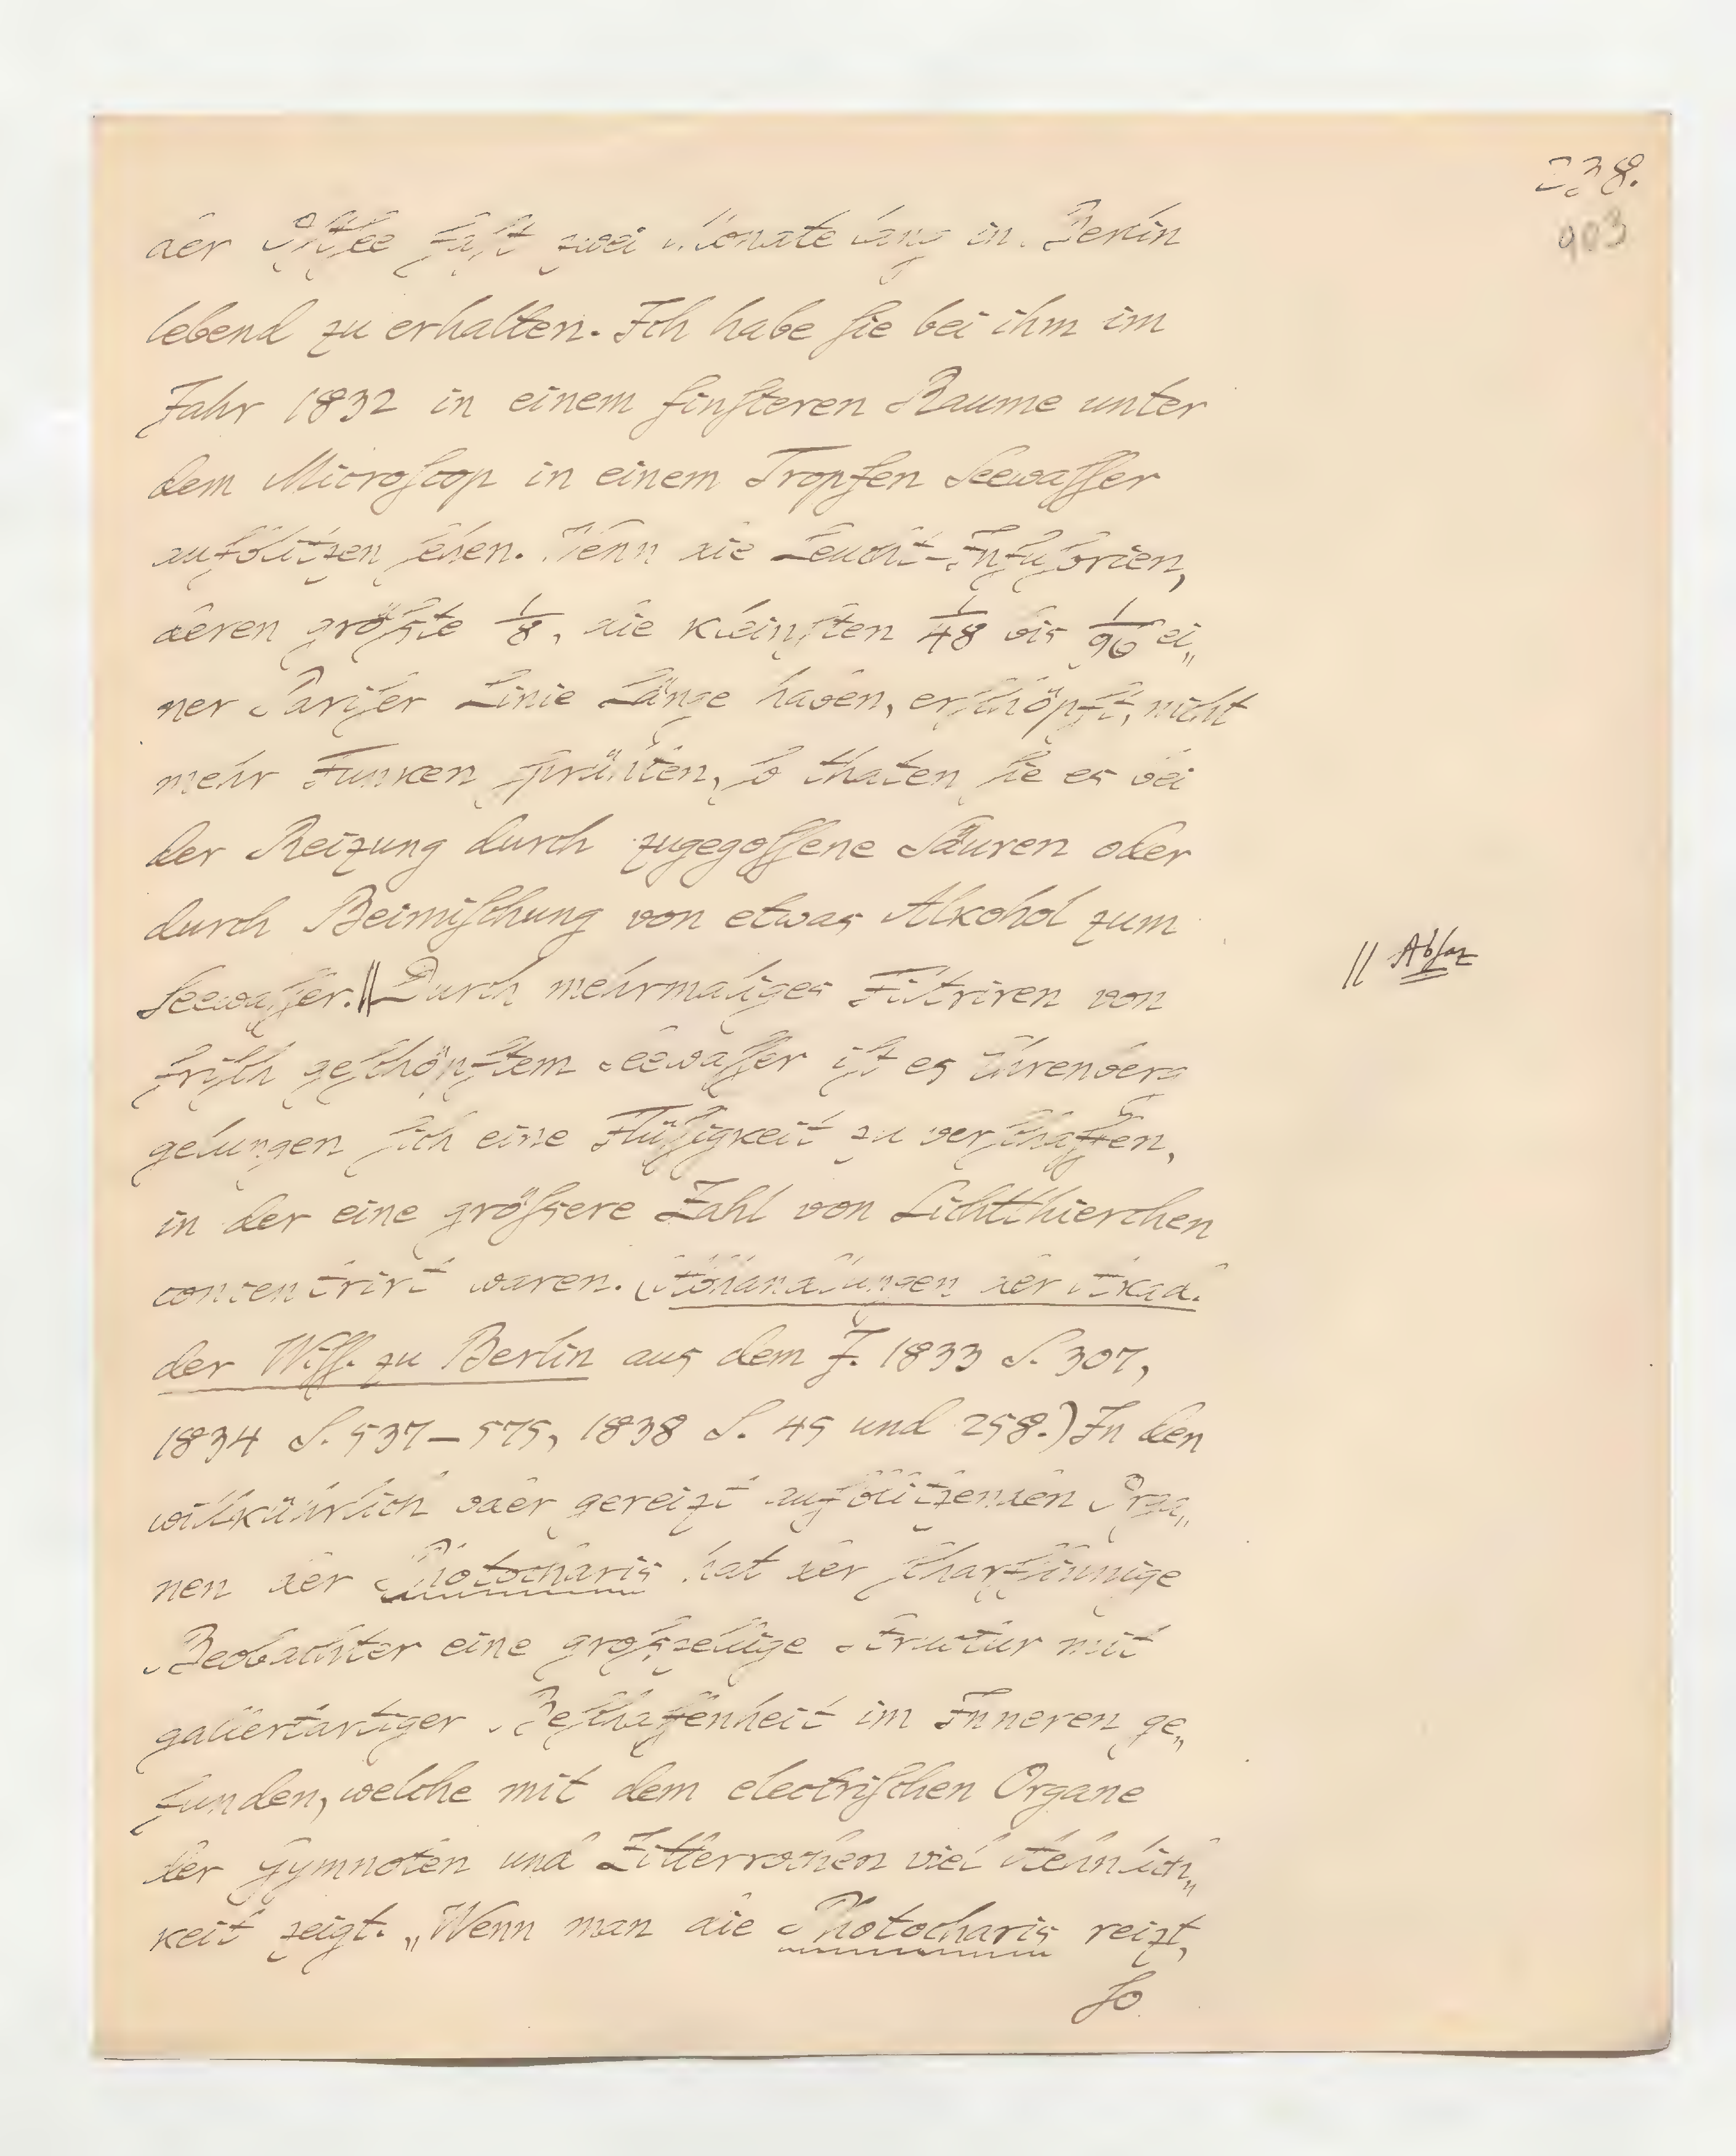 238.
903
der Oſtſee faſt zwei Monate lang in Berlin
lebend zu erhalten. Ich habe ſie bei ihm im
Jahr 1832 in einem finſteren Raume unter
dem Microſcop in einem Tropfen Seewaſſer
aufblitzen ſehen. Wenn die Leucht-Infuſorien,
deren gröſste 1/8, die kleinſten 1/48 bis 1/96 ei„
ner Pariſer Linie Länge haben, erſchöpft, nicht
mehr Funken ſprühten, ſo thaten ſie es bei
der Reizung durch zugegoſſene Säuren oder
durch Beimiſchung von etwas Alkohol zum
Seewaſſer.|| Durch mehrmaliges Filtriren von
|| Abſaz
friſch geſchöpftem Seewaſſer iſt es Ehrenberg
gelungen ſich eine Flüſſigkeit zu verſchaffen,
in der eine gröſsere Zahl von Lichtthierchen
concentrirt waren. (Abhandlungen der Akad.
der Wiſſ. zu Berlin aus dem J. 1833 S. 307,
1834 S. 537–575, 1838 S. 45 und 258.) In den
willkührlich oder gereizt aufblitzenden Orga„
nen der Photocharis hat der ſcharfſinnige
Beobachter eine groſszellige Structur mit
gallertartiger Beſchaffenheit im Inneren ge„
funden, welche mit dem electriſchen Organe
der Gymnoten und Zitterrochen viel Aehnlich„
keit zeigt. „Wenn man die Photocharis reizt,
ſo